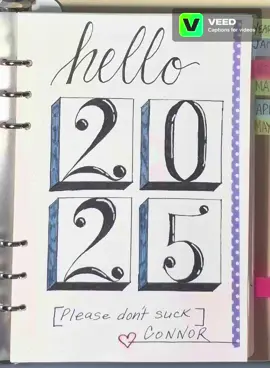 VEED
Captions for videos
hello
JA
20
MA
AP
25
MA
[Please don't suck]
♡ CONNOR